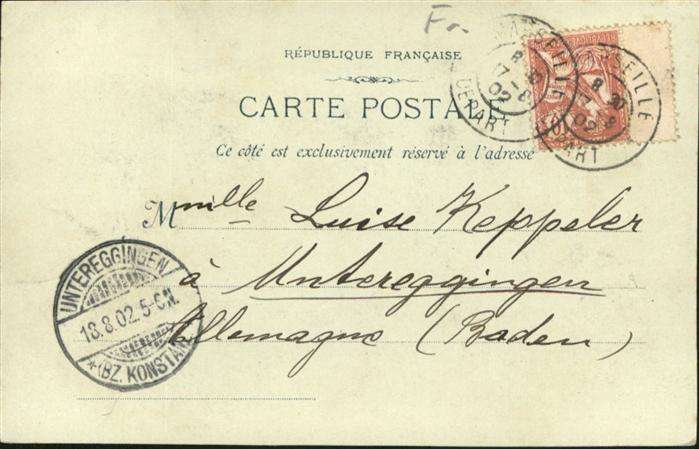 Fr.
RÉPUBLIQUE FRANÇAISE
CARTE POSTALE
Ce côté est exclusivement réservé à l'adresse
MARSEILLE
DEPART
8 30
17-8
02
MARSEILLE
DEPART
8 30
17-8
02
Mmlle Luise Keppeler
à Untereggingen
Allemagne (Baden)
UNTEREGGINGEN
18.8.02.5-6N.
(BZ. KONSTANZ